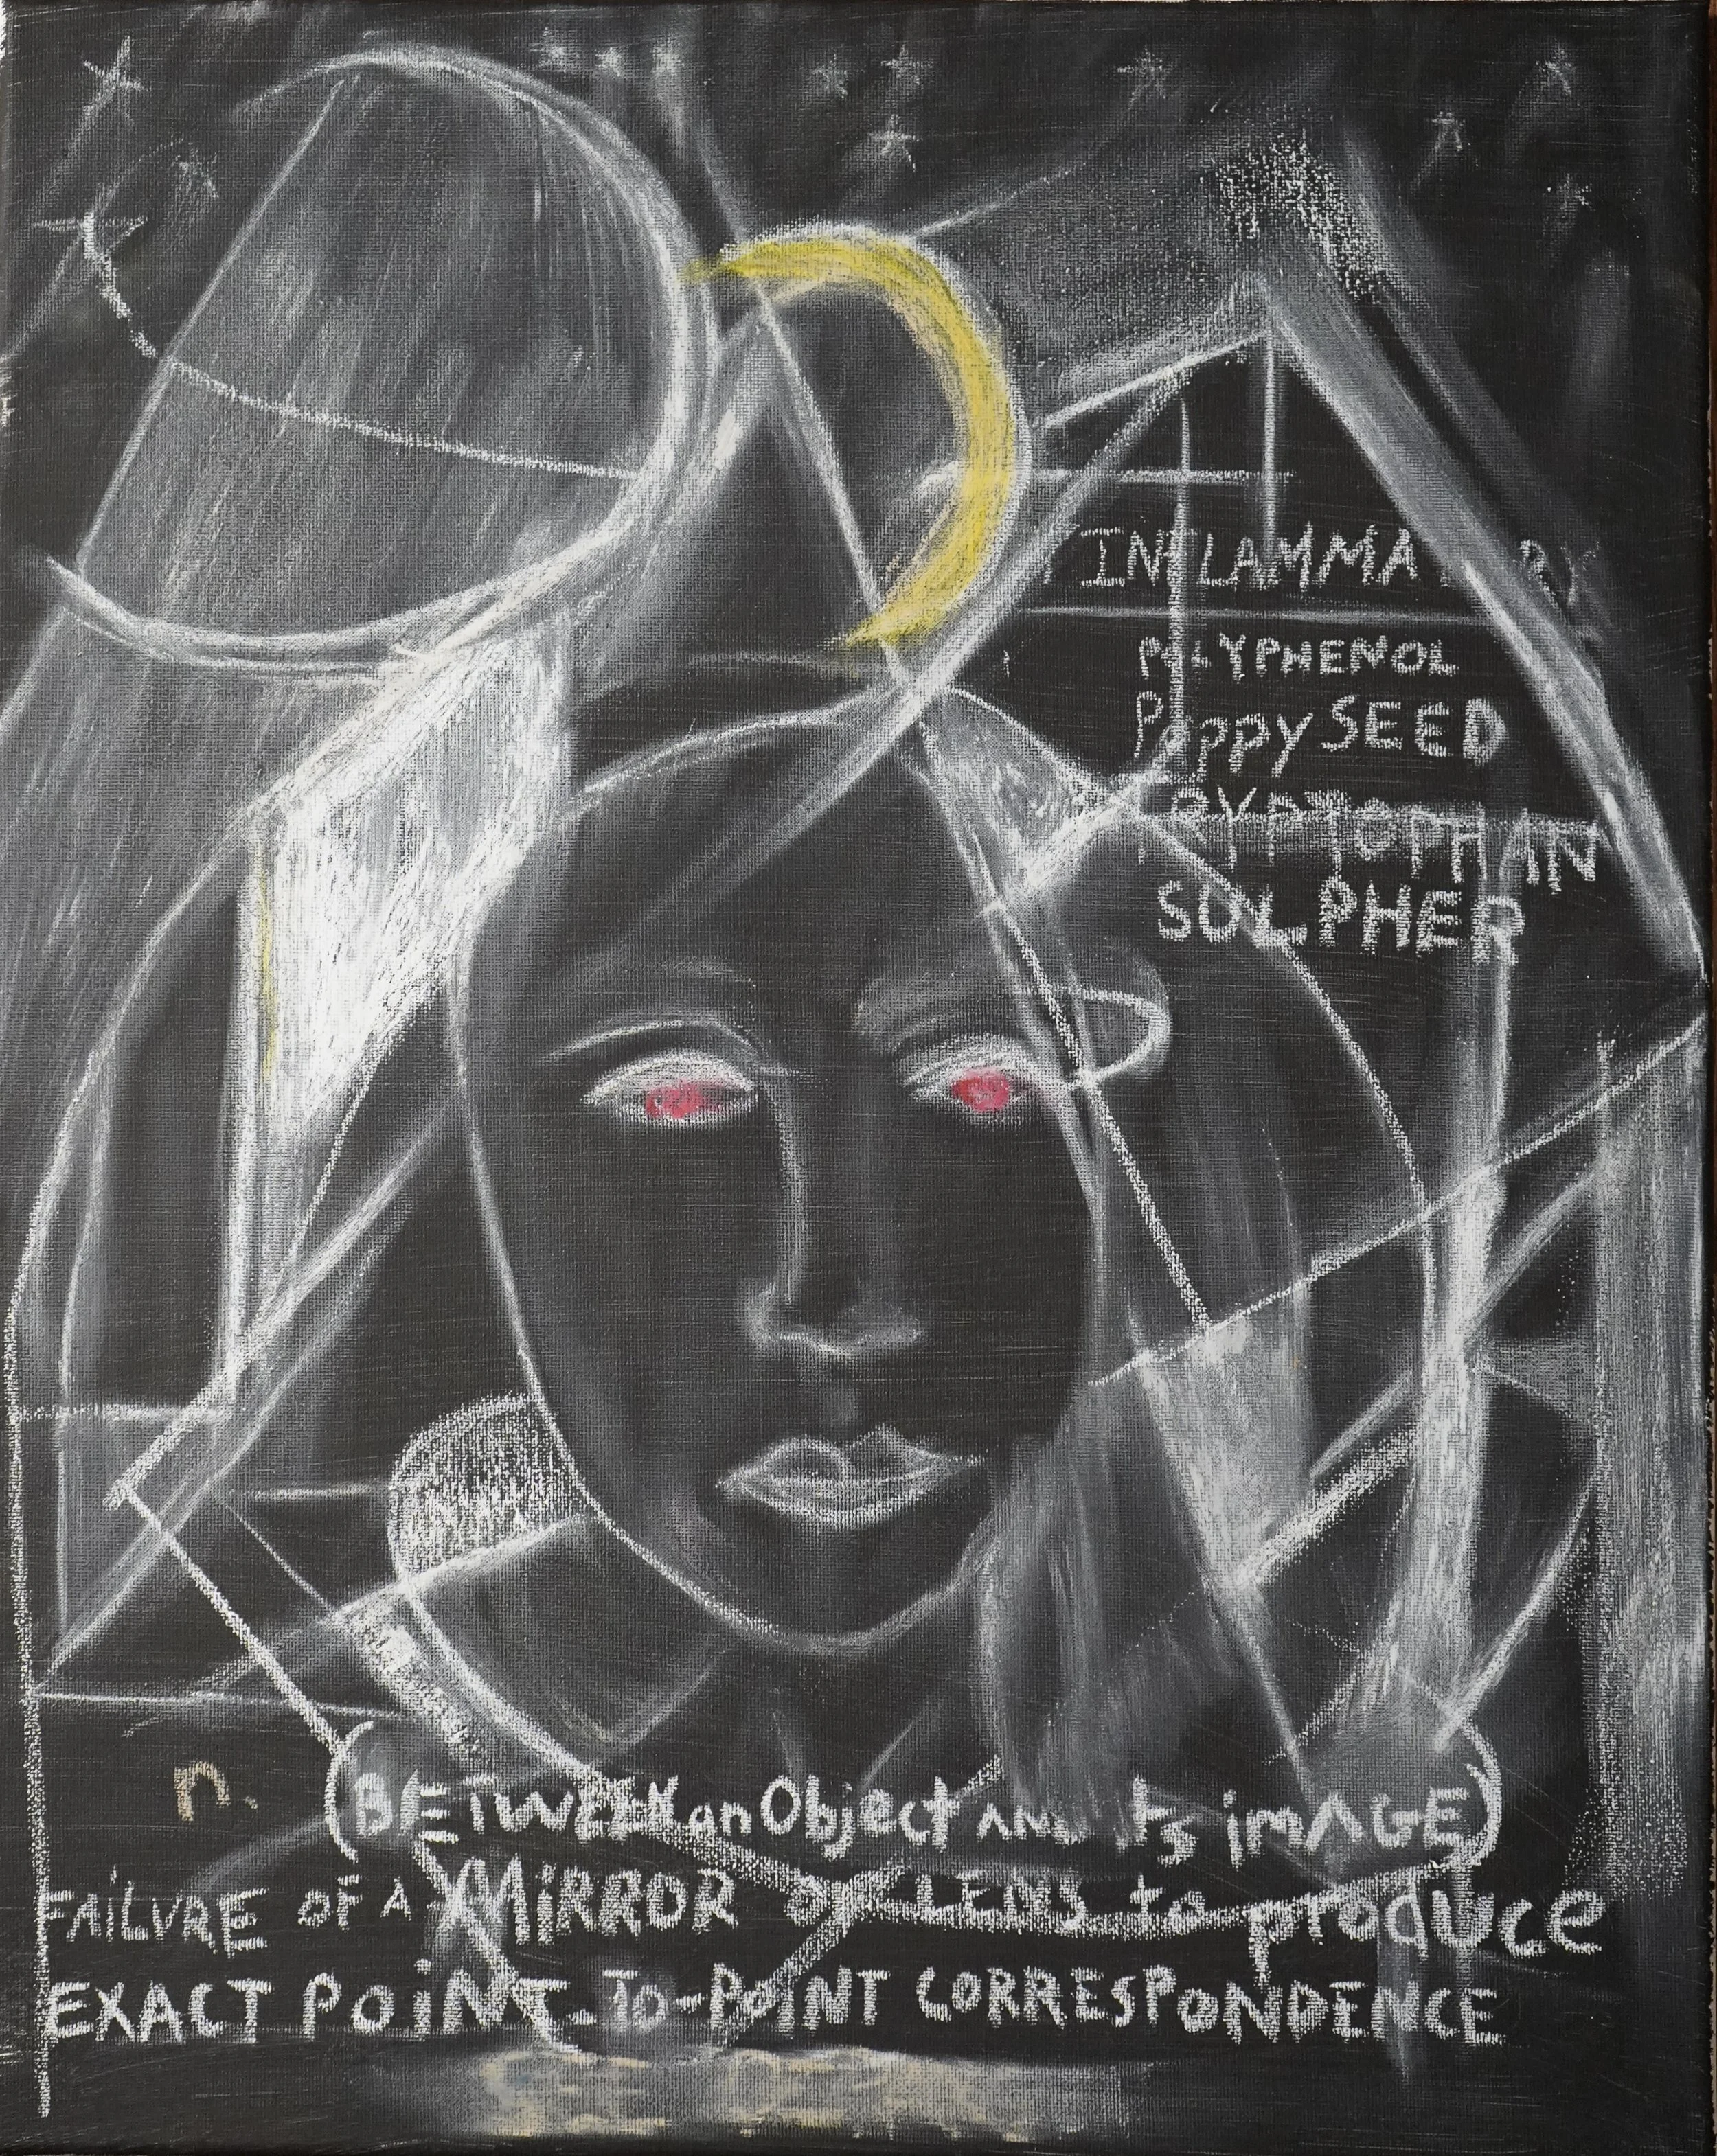 INFLAMMATORY
POLYPHENOL
PoppySEED
TRYPTOPHAN
SULPHER
n. (BETWEEN an Object AND Its imAGE)
FAiLURE OF A MiRROR OR LENS to produce
EXACT POiNT-TO-POINT CORRESPONDENCE